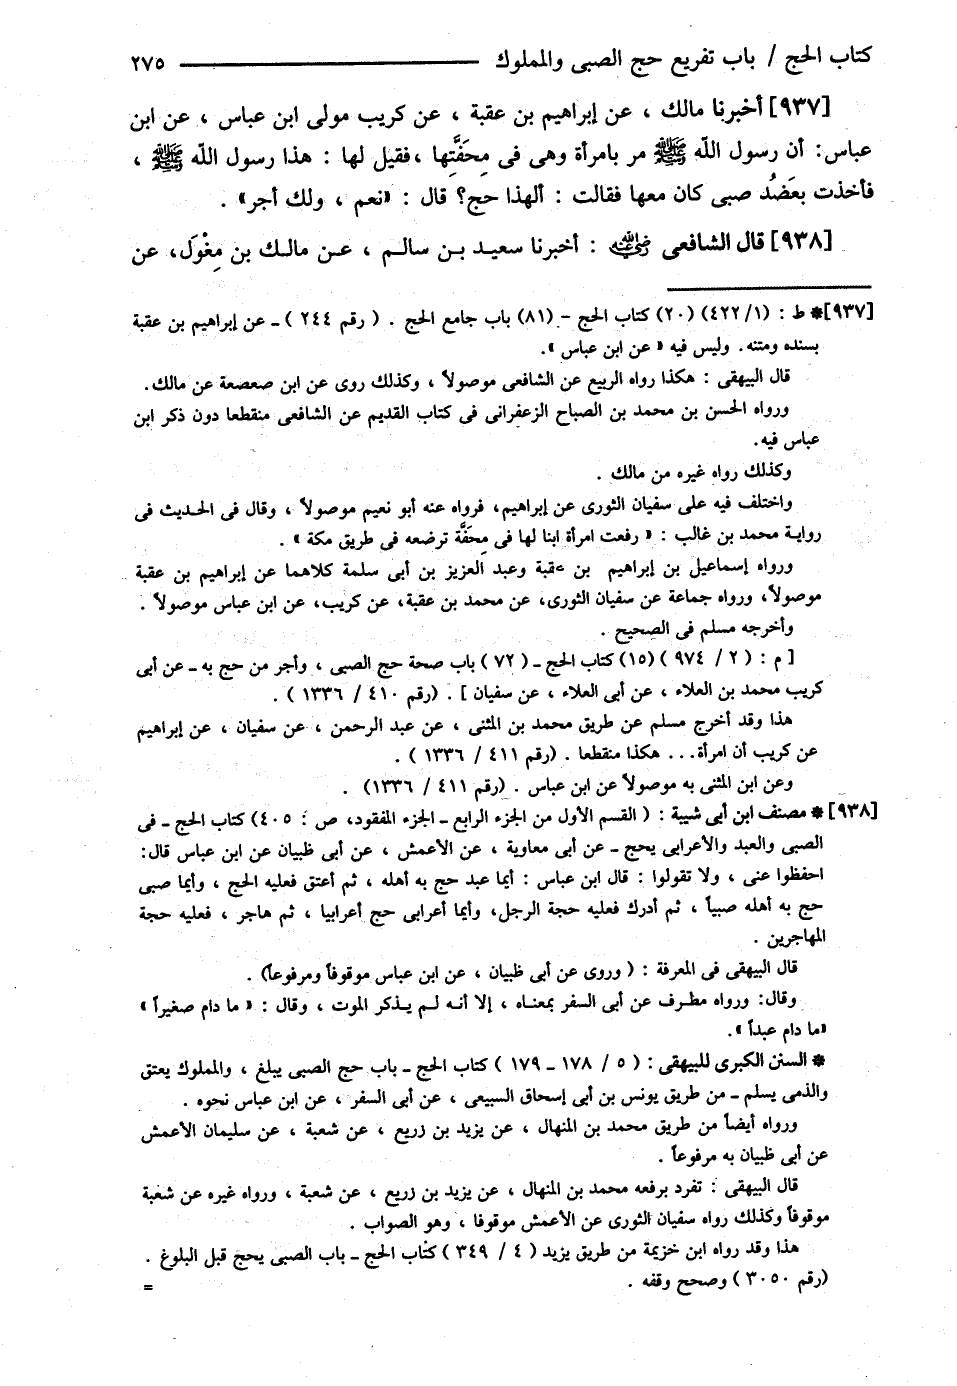 كتاب الحج / باب تفريع حج الصبى والمملوك ــــــــــــــــــــ ٢٧٥
[٩٣٧] أخبرنا مالك ، عن إبراهيم بن عقبة ، عن كريب مولى ابن عباس ، عن ابن
عباس: أن رسول اللّه ﷺ مر بامرأة وهى فى مِحَفَّتِها ،فقيل لها : هذا رسول اللّه ﷺ ،
فأخذت بعَضُد صبى كان معها فقالت : ألهذا حج؟ قال : «نعم ، ولك أجر» .
[٩٣٨] قال الشافعى رضي الله عنه : أخبرنا سعيد بن سالم ، عن مالك بن مِغْوَل، عن
[٩٣٧]* ط : (١/ ٤٢٢) (٢٠) كتاب الحج - (٨١) باب جامع الحج . ( رقم ٢٤٤ ) ـ عن إبراهيم بن عقبة
بسنده ومتنه. وليس فيه « عن ابن عباس ».
قال البيهقى : هكذا رواه الربيع عن الشافعى موصولاً ، وكذلك روى عن ابن صعصعة عن مالك.
ورواه الحسن بن محمد بن الصباح الزعفرانى فى كتاب القديم عن الشافعى منقطعا دون ذكر ابن
عباس فيه.
وكذلك رواه غيره من مالك .
واختلف فيه على سفيان الثورى عن إبراهيم، فرواه عنه أبو نعيم موصولاً ، وقال فى الحديث فى
رواية محمد بن غالب : « رفعت امرأة ابنا لها فى مِحَفَّة ترضعه فى طريق مكة » .
ورواه إسماعيل بن إبراهيم بن عقبة وعبد العزيز بن أبى سلمة كلاهما عن إبراهيم بن عقبة
موصولاً، ورواه جماعة عن سفيان الثورى، عن محمد بن عقبة، عن كريب، عن ابن عباس موصولاً .
وأخرجه مسلم فى الصحيح .
[ م : ( ٢ / ٩٧٤ ) (١٥) كتاب الحج ـ ( ٧٢ ) باب صحة حج الصبى ، وأجر من حج به ـ عن أبى
كريب محمد بن العلاء ، عن أبى العلاء ، عن سفيان ] . (رقم ٤١٠ / ١٣٣٦ ) .
هذا وقد أخرج مسلم عن طريق محمد بن المثنى ، عن عبد الرحمن ، عن سفيان ، عن إبراهيم
عن كريب أن امرأة... هكذا منقطعا . (رقم ٤١١ / ١٣٣٦ ) .
وعن ابن المثنى به موصولاً عن ابن عباس . (رقم ٤١١ / ١٣٣٦) .
[٩٣٨] * مصنف ابن أبى شيبة : ( القسم الأول من الجزء الرابع ـ الجزء المفقود، ص : ٤٠٥) كتاب الحج ـ فى
الصبى والعبد والأعرابى يحج ـ عن أبى معاوية ، عن الأعمش ، عن أبى ظبيان عن ابن عباس قال:
احفظوا عنى ، ولا تقولوا : قال ابن عباس : أيما عبد حج به أهله ، ثم أعتق فعليه الحج ، وأيما صبى
حج به أهله صبياً ، ثم أدرك فعليه حجة الرجل، وأيما أعرابى حج أعرابيا ، ثم هاجر ، فعليه حجة
المهاجرين .
قال البيهقى فى المعرفة : ( وروى عن أبى ظبيان ، عن ابن عباس موقوفاً ومرفوعاً) .
وقال: ورواه مطرف عن أبى السفر بمعناه ، إلا أنه لم يذكر الموت ، وقال : « ما دام صغيراً »
«ما دام عبداً ».
* السنن الكبرى للبيهقى : ( ٥ / ١٧٨ ـ ١٧٩ ) كتاب الحج ـ باب حج الصبى يبلغ ، والمملوك يعتق
والذمى يسلم ـ من طريق يونس بن أبى إسحاق السبيعى ، عن أبى السفر ، عن ابن عباس نحوه .
ورواه أيضاً من طريق محمد بن المنهال ، عن يزيد بن زريع ، عن شعبة ، عن سليمان الأعمش
عن أبى ظبيان به مرفوعاً .
قال البيهقى : تفرد برفعه محمد بن المنهال ، عن يزيد بن زريع ، عن شعبة ، ورواه غيره عن شعبة
موقوفاً وكذلك رواه سفيان الثورى عن الأعمش موقوفا ، وهو الصواب .
هذا وقد رواه ابن خزيمة من طريق يزيد ( ٤ / ٣٤٩ ) كتاب الحج ـ باب الصبى يحج قبل البلوغ .
(رقم ٣٠٥٠ ) وصحح وقفه .
=